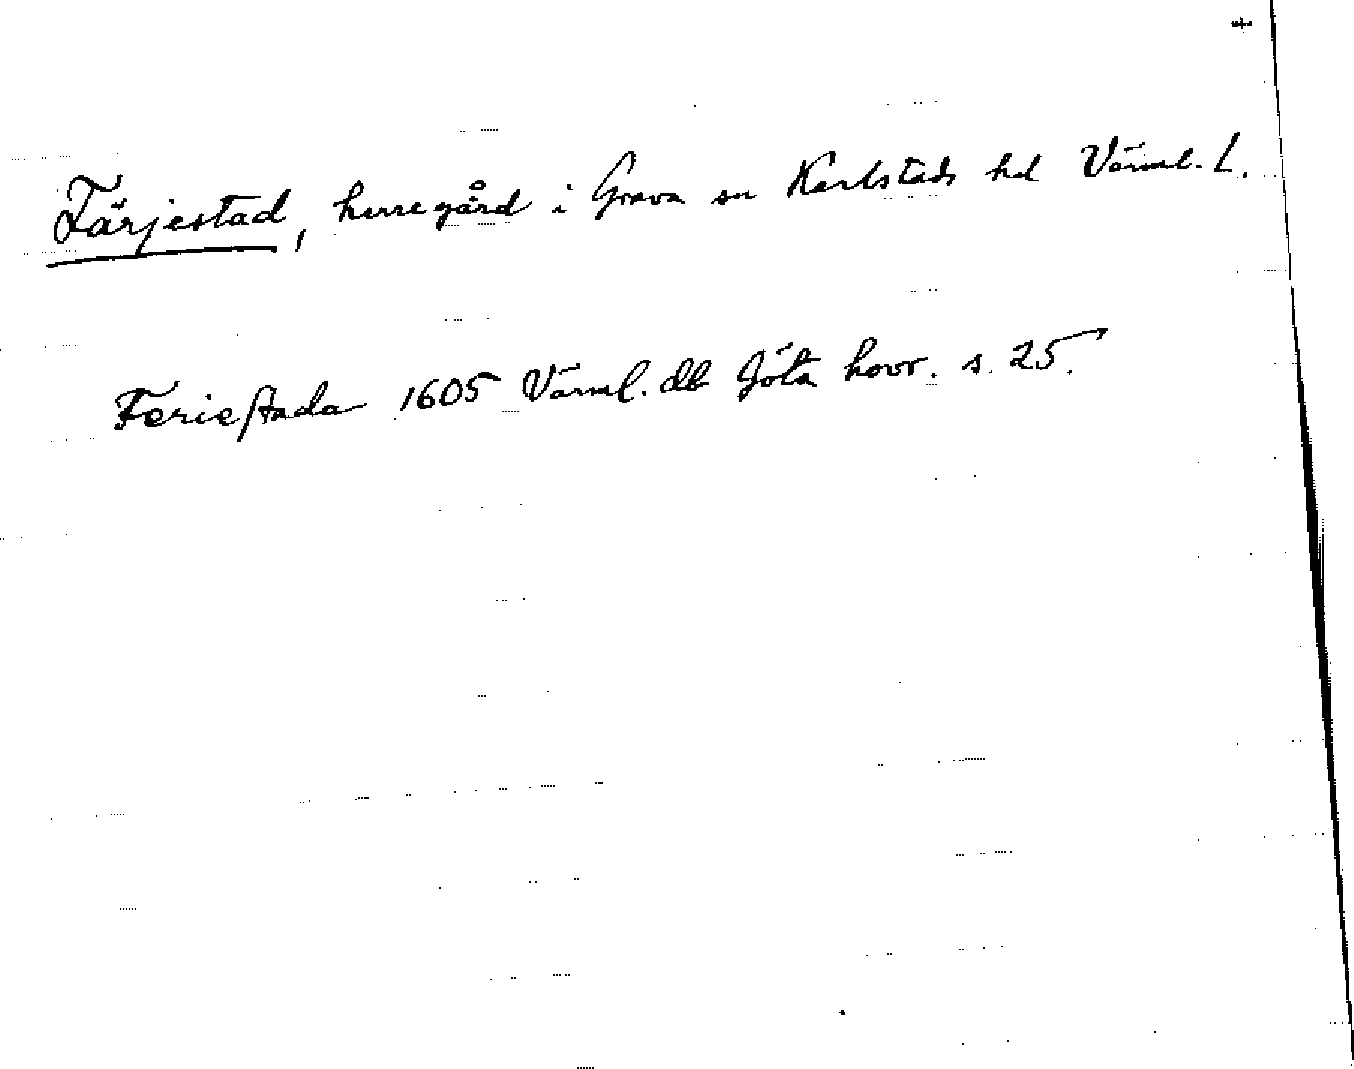 Färjestad, herregård i Grava sn Karlstads hd Värml. L.
Feriestada 1605 Värml. db Göta hovr. s. 25.